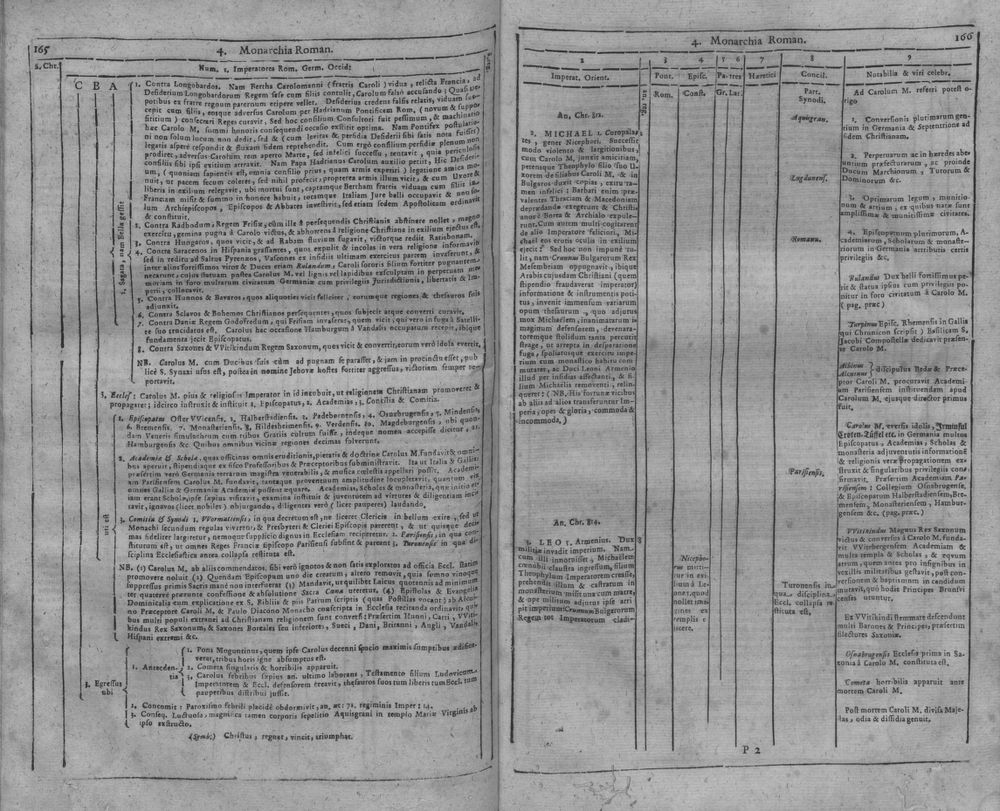 165
4. Monarchia Roman.
Num. 1. Imperatores Rom. Germ. Occid:
C B A
1. Contra Longobardos. Nam Bertha Carolomanni (fratris Caroli) vidua, relicta Francia, ad
Desiderium Longobardorum Regem sese cum filiis contulit, Carolum falsò accusando; Quasi
poribus ex fratre regnum paternum eripere vellet. Desiderius credens falsis relatis, viduam
cepit cum filiis, eosque adversus Carolum per Hadrianum Pontificem Rom.
stiticium) consecrari Reges curavit. Sed hoc consilium Consultori fuit pessimum, & machinatio
hæc Carolo M. summi honoris consequendi occasio exstitit optima. Nam Pontifex postulatio-
ni non solum locum non dedit, sed & (cum levitas & perfidia Desiderii sibi satis nota fuisset)
legatis asperè respondit & fluxam fidem reprehendit. Cum ergò consilium perfidiæ plenum non
prodiret, adversus Carolum rem aperto Marte, sed infelici successu, tentavit, quia
consiliis sibi ipsi exitium arcessit. Nam Papa Hadrianus Carolum auxilio petiit, Hic Desiderio
um, (quoniam sapientis est, omnia consilio prius, quam armis experiri) legationes amicè mo-
nuit, ut pacem secum coleret, sed nihil profecit: properteream armis illum vicit, & cum Uxore &
liberis in exilium relegavit, ubi mortui sunt, captamque Bertham fratris viduam cum filiis in
Franciam misit & summo in honore habuit, totamque Italiam Jure belli occupavit & non so-
lum Archiepiscopos, Episcopos & Abbates investivit, sed etiam sedem Apostolicam ordinavit
& constituit.
2. Contra Radbodum, Regem Frisiæ, cum ille à persequendis Christianis abstinere nollet, magno
exercitu, gemina pugna à Carolo victus, & abhorrens à religione Christiana in exilium ejectus est.
3. Contra Hungaros, quos vicit, & ad Rabam fluvium fugavit, victorque rediit Ratisbonam.
4. Contra Saracenos in Hispania grassantes, quos expulit & incolas in vera religione informavit,
sed in reditu ad Saltus Pyrenæos, Vascones ex insidiis ultimum exercitus partem invaserunt, &
inter alios fortissimos viros & Duces etiam Rolandum, Caroli sororis filium fortiter pugnantem
necarunt, cujus statuam postea Carolus M. vel ligneis vel lapidibus exsculptam in perpetuam me-
moriam in foro multarum civitatum Germaniæ cum privilegiis Jurisdictionis, libertatis & Im-
perii, collocavit.
5. Contra Hunnos & Bavaros, quos aliquoties vicit feliciter, eorumque regiones & thesauros sibi
adjunxit.
6. Contra Sclavos & Bohemos Christianos persequentes, quos subjecit atque converti curavit.
7. Contra Daniæ Regem Godofredum, qui Frisiam invaserat, quem vicit, qui verò in fuga à Satelli-
te suo trucidatus est. Carolus hac occasione Hamburgum à Vandalis occupatum recepit, ibique
fundamenta jecit Episcopatus.
8. Contra Saxones & VVitikindum Regem Saxonum, ques vicit & convertit, eorum verò idola evertit.
NB. Carolus M. cum Ducibus suis cùm ad pugnam se parasset, & jam in procinctu esset, pub
licè S. Synaxi usus est, postea in nomine Jehovæ hostes fortiter aggressus, victoriam semper re-
portavit.
2. Sagata, nam Bella gessit
3. Eccles: Carolus M. pius & religiosus Imperator in id incubuit, ut religionem Christianam promoveret &
propagaret; idcirco instruxit & instituit 1. Episcopatus, 2. Academias, 3. Concilia & Comitia.
1. Episcopatus Oster VVicensis, 2. Halberstadiensis. 3. Padebornensis, 4. Osnabrugensis, 5. Mindensis,
6. Bremensis, 7. Monasteriensis. 8. Hildesheimensis. 9. Verdensis. 10. Magdeburgensis, ubi quon-
dam Veneris simulachrum cum tribus Gratiis cultum fuisse, indeque nomen accepisse dicitur, 11.
Hamburgensis &c. Quibus omnibus vicinæ regiones decimas solverunt.
2. Academiæ & Scholæ, quas officinas omnis eruditionis, pietatis & doctrinæ Carolus M. fundavit & omni-
bus aperuit, stipendiaque ex fisco Professoribus & Præceptoribus subministravit. Ita ut Italiæ & Galliæ
præsertim verò Germaniæ terrarum magistra venerabilis, & musica cœlestis appellari posset. Academi-
am Parisiensem Carolus M. fundavit, tantaque proventuum amplitudine locupletavit, quantum vix
omnes Galliæ & Germaniæ Academiæ possent æquare. Academias, Scholas & monasteria, quæ initio eti-
am erant Scholæ, ipse sæpius visitavit, examina instituit & juventutem ad virtutes & diligentiam inci-
tavit, ignavos (licet nobiles) objurgando, diligentes verò (licet pauperes) laudando.
uti est
3. Comitia & Synodi 1. VVormatiensis, in qua decretum est, ne liceret Clericis in bellum exire, sed ut
Monachi secundum regulas viverent, & Presbyteri & Clerici Episcopis parerent, & ut quisque deci-
mas fideliter largiretur, nemoque supplicio dignus in Ecclesiam reciperetur. 2. Parisiensis, in qua con-
stitutum est, ut omnes Reges Franciæ Episcopo Parisiensi subsint & pareant 3. Turonensis in qua di-
sciplina Ecclesiastica antea collapsa restituta est.
NB. (1) Carolus M. ab aliis commendatos, sibi verò ignotos & non satis exploratos ad officia Eccl. statim
promovere noluit (2) Quendam Episcopum uno die crearum altero removit, quia somno vinoque
suppressus primis Sacris manè non interfuerat (3) Mandavit, ut quilibet Laicus quotannis ad minimum
ter quatérve præeunte confessione & absolutione Sacra Cœna uteretur, (4) Epistolas & Evangelia
Dominicalia cum explicatione ex S. Bibliis & piis Patrum scriptis (quas Postillas vocant) ab Alcui-
no Præceptore Caroli M. & Paulo Diacono Monacho conscripta in Ecclesia recitanda ordinavit
bus multi populi extranei ad Christianam religionem sunt conversi: Præsertim Hunni, Carri, VViti-
kindus Rex Saxonum, & Saxones Boreales seu inferiores, Sueci, Dani, Britanni, Angli, Vandali,
Hispani extremi &c.
3. Egressus
ubi
1. Anteceden-
tia
1. Pons Moguntinus, quem ipse Carolus decenni spocio maximis sumptibus ædifica-
verat, tribus horis igne absumptus est.
2. Cometa singularis & horribilis apparuit.
3. Carolus febribus sæpius an. ultimo laborans, Testamento filium Ludovicum
Imperatorem & Eccl. defensorem creavit, thesauros suos tum liberis tum Eccl. tum
pauperibus distribui jussit.
2. Concomit: Paroxismo febrili placidè obdormivit, an. æt: 72. regiminis Imper: 14.
3. Conseq. Luctuosa, magnifica tamen corporis sepelitio Aquisgrani in templo Mariæ Virginis ab
ipso exstructo.
(Symb.) Christus, regnat, vincit, triumphat.
4. Monarchia Roman.
166
2
3
4
5 6
7
8
9
Imperat. Orient.
Pont.
Episc.
Patres
Hæretici
Concil.
Notabilia & viri celebr.
Rom.
Const.
Gr. Lat.
Part.
Synodi.
An. Chr. 812.
2. MICHAEL 1. Coropalates,
gener Nicephori. Successit
modo violento & largitionibus,
cum Carolo M. junxit amicitiam,
petensque Theophylo filio suo U-
xorem de filiabus Caroli M. & in
Bulgaros duxit copias, exitu ta-
men infelici: Barbari enim præ-
valentes Thraciam & Macedoniam
deprædando exegerunt & Christia
anos è Borea & Archialo expule-
runt. Cum autem multi cogitarent
de alio Imperatore feliciori, Mi-
chael eos erutis oculis in exilium
ejecit: Sed hoc non impunè tu-
lit, nam Crunnus Bulgarorum Rex
Mesembriam oppugnavit, ibique
Arabis cujusdam Christiani (quem
stipendio fraudaverat imperator)
informatione & instrumentis poti-
tus, invenit immensum variarum
opum thesaurum, quo adjutus
mox Michaelem, inanimatarum is
maginum defensorem, devenara-
toremque stolidum tanta percutit
strage, ut arrepta in desperatione
fuga, spoliatusque exercitu impe-
rium cum monastico habitu com-
mutaret, ac Duci Leoni Armenio
illud per insidias affectanti, & fi-
lium Michaelis removenti, relin-
queret: (NB. His fortnæ vicibus
ab aliis ad alios transferuntur Im-
peria, opes & gloria, commoda &
incommoda,)
An. Chr. 814.
3. LEO V. Armenius. Dux
militiæ invadit imperium. Nam
cum illi innotuisset, Michaëlem
cœnobii claustra ingressum, filium
Theophylum Imperatorem creasse,
prehendit illum & castratum in
monasterium misit una cum matre,
& ope militum adjutus ipse arri
pit imperium: Crunnus Bulgarorum
Regem tot Imperatorum cladi-
Nicepho-
rus mitti-
tur in exi-
lium à Le-
one, quod
nollet ima-
gines ex
templis e
jicere.
Aquisgran.
Lugdunens.
Romana.
Parisiensis.
Turonensis in
qua disciplina
Eccl. collapsa re
stituta est.
Ad Carolum M. referri potest o-
rigo
1. Conversionis plurimarum gen-
tium in Germania & Septentrione ad
fidem Christianam.
2. Perpetuarum ac in hæredes abe-
untium præfecturarum, ac proinde
Ducum Marchionum, Tutorum &
Dominorum &c.
3. Optimarum legum, munitio-
num & artium, ex quibus natæ sunt
amplissimæ & munitissimæ civitates.
4. Episcopatuum plurimorum, A-
cademiarum, Scholarum & monaste-
riorum in Germania attributis certis
privilegiis &c.
Rulandus Dux belli fortissimus pe-
rit & statua ipsius cum privilegiis po-
nitur in foro civitatum à Carolo M.
(pag. præc.)
Turpinus Episc. Rhemensis in Gallia
qui Chronicon scripsit) Basilicam S,
Jacobi Compostellæ dedicavit præsen-
te Carolo M.
Albinus
Alcuinus } discipulus Bedæ & Præce-
ptor Caroli M. procuravit Academi
am Parisiensem instituendam apud
Carolum M, ejusque director primus
fuit,
Carolus M. eversis idolis, Irmensul
Croten-Tüffel etc. in Germania multos
Episcopatus, Academias, Scholas &
monasteria ad juventutis informationē
& religionis veræ propagationem ex-
struxit & singularibus privilegiis confirmavit.
Præsertim Academiam Parisiensem:
Collegium Osnabrugense,
& Episcopatum Halberstadiensem, Bre-
mensem, Monasteriensem, Hambur-
gensem &c. (pag. præc.)
VVitikindus Magnus Rex Saxonum
victus & conversus à Carolo M. funda-
vit VVirebergensem Academiam &
multa templa & Scholas, & equum
atrum, quem antea pro insignibus in
vexillis militaribus gestavit, post con-
versionem & baptismum in candidum
mutavit, quo hodiè Principes Brunsvi
censes utuntur.
Ex VVitikindi stemmate descendunt
multi Barones & Principes, præsertim
Electores Saxoniæ.
Osnabrugensis Ecclesia prima in Sa-
xonia à Carolo M. constituta est,
Cometa horribilis apparuit ante
mortem Caroli M.
Post mortem Caroli M. divisa Maje-
stas, odia & dissidia genuit,
P 2